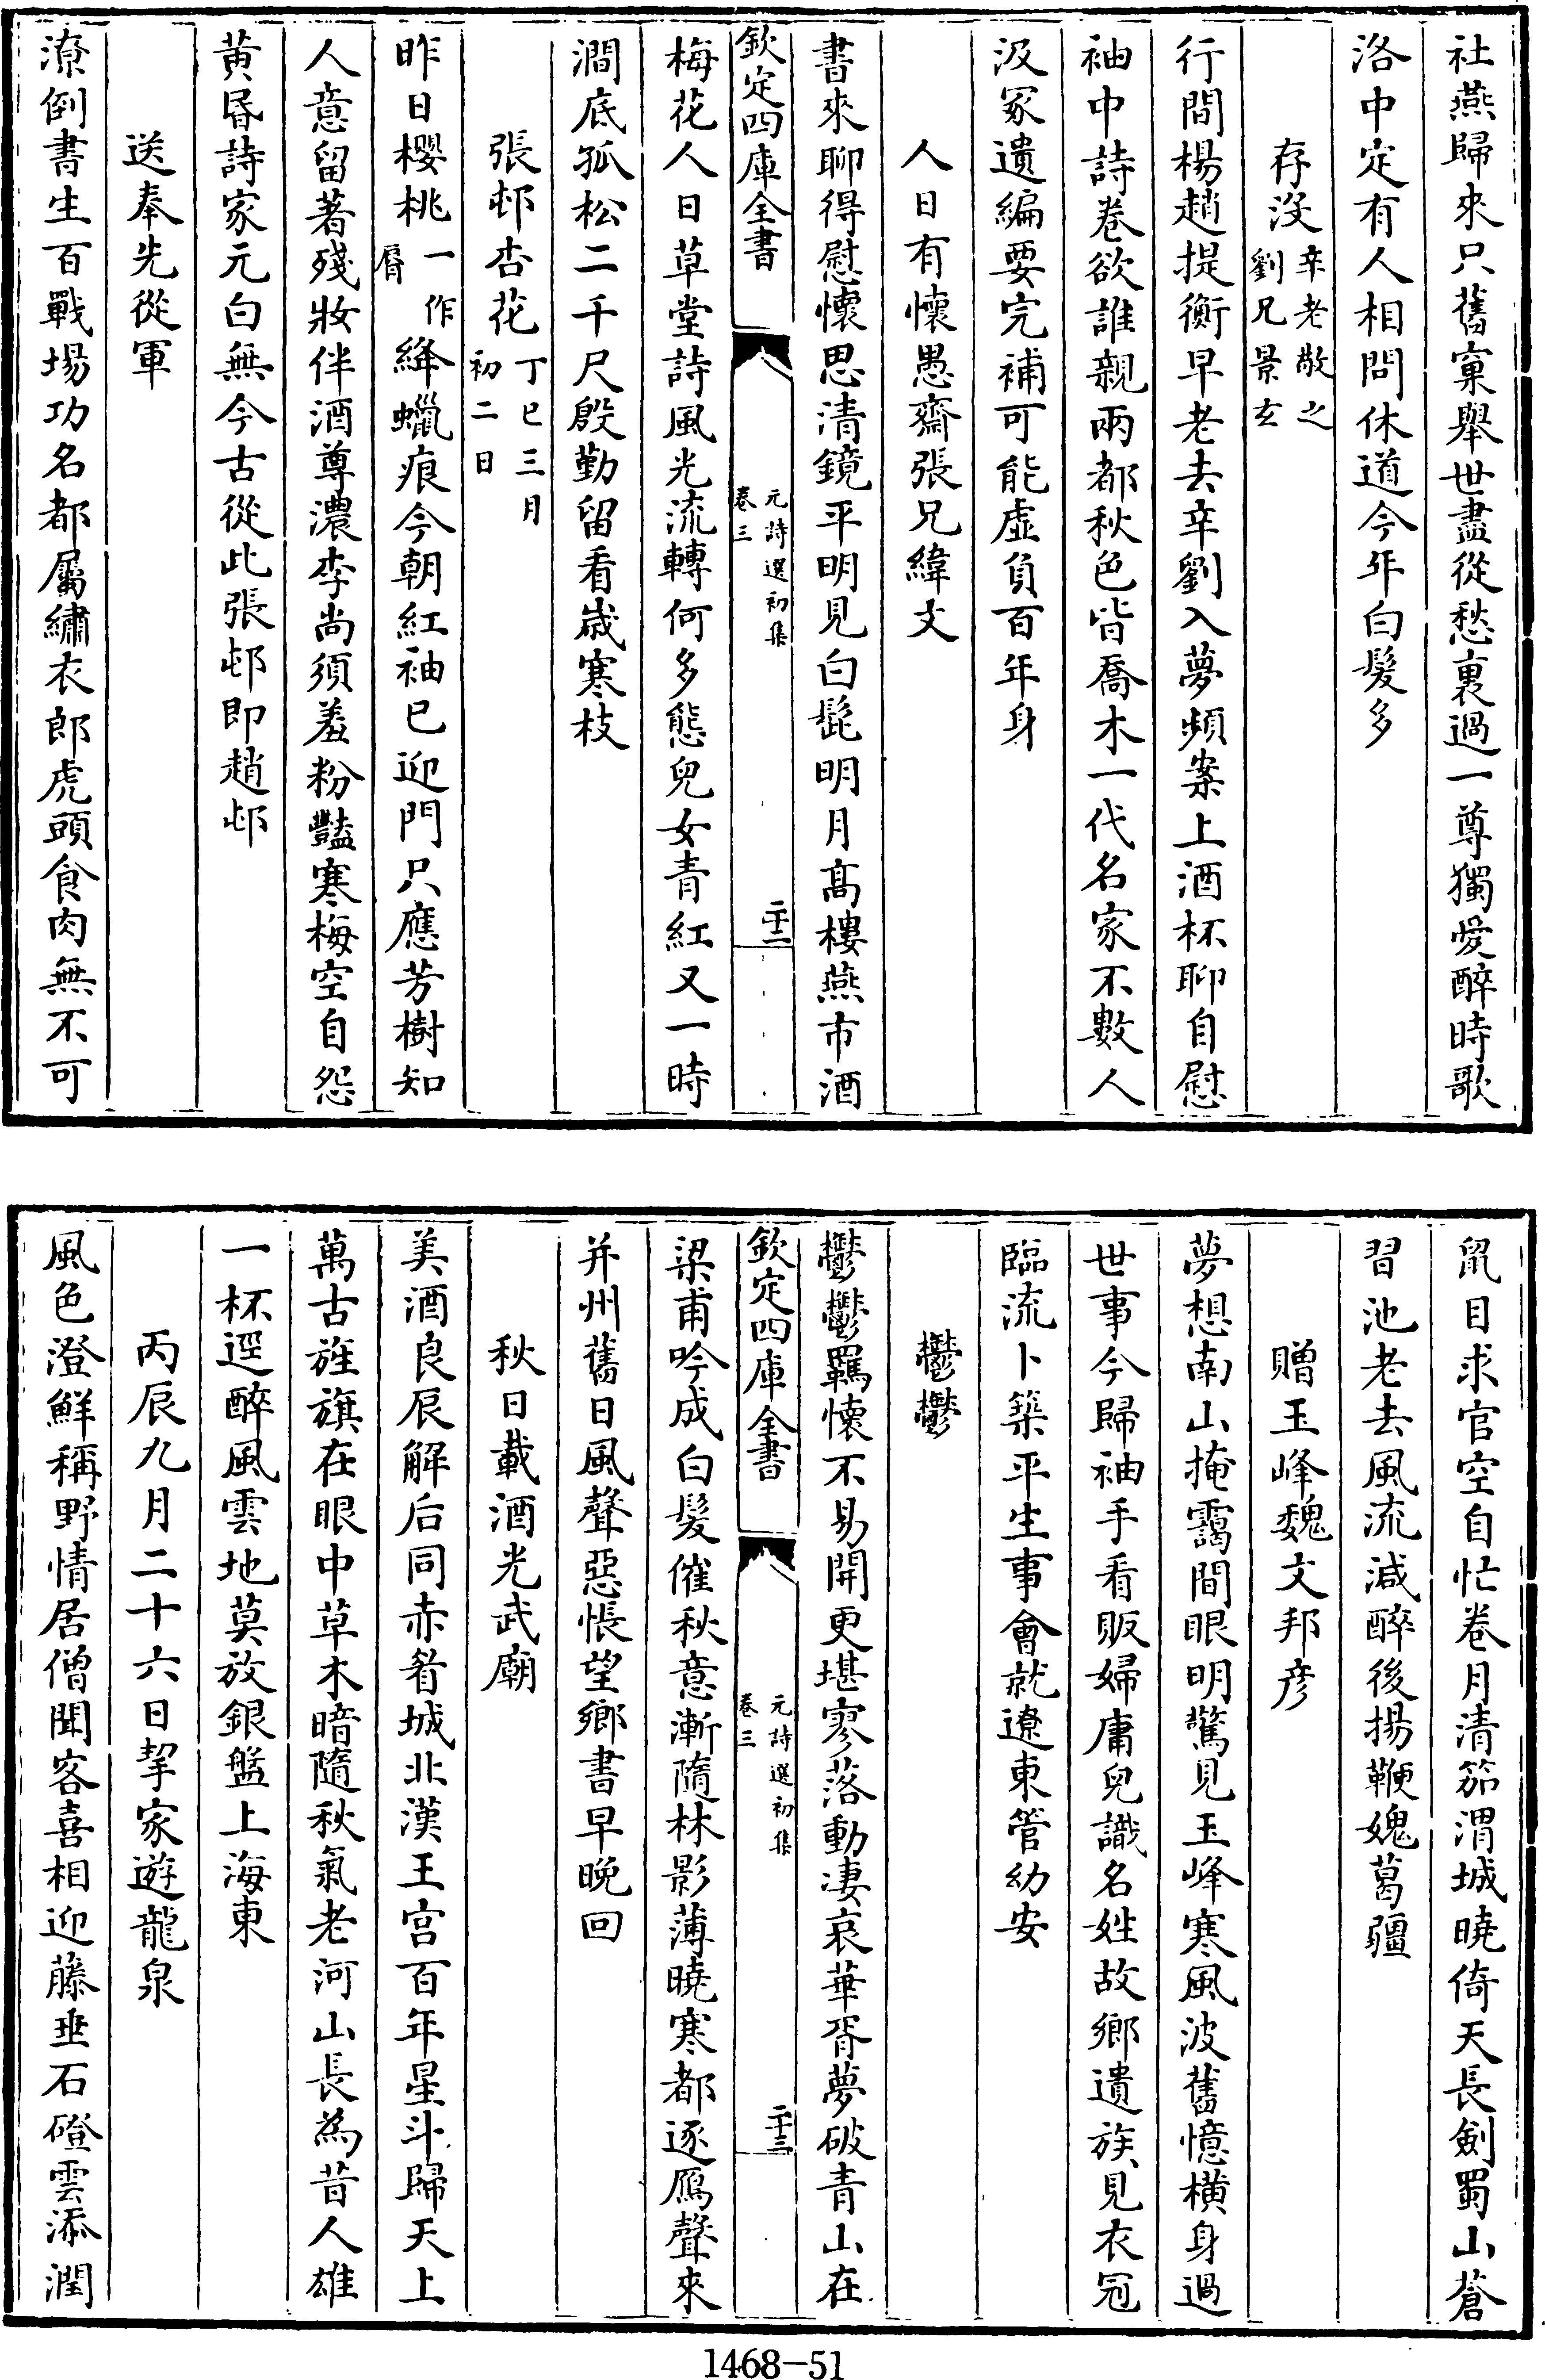 社燕歸來只舊窠舉世盡從愁裏過一尊獨愛醉時歌
洛中定有人相問休道今年白髮多
存沒辛老敬之劉兄景玄
行間楊趙提衡早老去辛劉入夢頻案上酒杯聊自慰
袖中詩卷欲誰親兩都秋色皆喬木一代名家不數人
汲冢遺編要完補可能虛負百年身
人日有懷愚齋張兄緯文
書來聊得慰懷思清鏡平明見白髭明月高樓燕市酒
欽定四庫全書
元詩選初集
卷三
二十二
梅花人日草堂詩風光流轉何多態兒女青紅又一時
澗底孤松二千尺殷勤留看歲寒枝
張邨杏花丁巳三月初二日
昨日櫻桃一作脣絳蠟痕今朝紅袖已迎門只應芳樹知
人意留著殘妝伴酒尊濃李尚須羞粉豔寒梅空自怨
黃昏詩家元白無今古從此張邨即趙邨
送奉先從軍
潦倒書生百戰場功名都屬繡衣郎虎頭食肉無不可
鼠目求官空自忙卷月清笳渭城曉倚天長劍蜀山蒼
習池老去風流減醉後揚鞭媿葛疆
贈玉峰魏文邦彥
夢想南山掩靄間眼明驚見玉峰寒風波舊憶橫身過
世事今歸袖手看販婦庸兒識名姓故鄉遺族見衣冠
臨流卜築平生事會就遼東管幼安
鬱鬱
鬱鬱羈懷不易開更堪寥落動淒哀華胥夢破青山在
欽定四庫全書
元詩選初集
卷三
二十三
梁甫吟成白髮催秋意漸隨林影薄曉寒都逐鴈聲來
并州舊日風聲惡悵望鄉書早晚回
秋日載酒光武廟
美酒良辰解后同赤眉城北漢王宮百年星斗歸天上
萬古旌旗在眼中草木暗隨秋氣老河山長為昔人雄
一杯逕醉風雲地莫放銀盤上海東
丙辰九月二十六日挈家遊龍泉
風色澄鮮稱野情居僧聞客喜相迎藤垂石磴雲添潤
1468-51